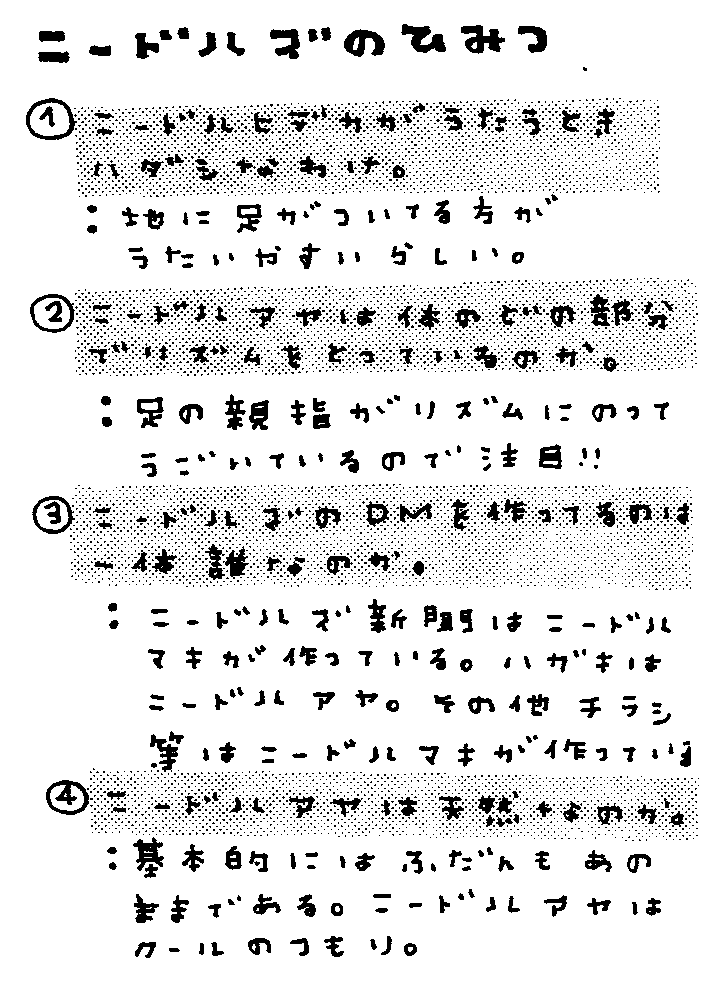 ニードルズのひみつ
① ニードルヒデカがうたうとき
ハダシなわけ。
：地に足がついてる方が
うたいやすいらしい。
② ニードルアヤは体のどの部分
でリズムをとっているのか。
：足の親指がリズムにのって
うごいているので注目!!
③ ニードルズのDMを作ってるのは
一体誰なのか。
：ニードルズ新聞はニードル
マキが作っている。ハガキは
ニードルアヤ。その他チラシ
等はニードルマキが作っている
④ ニードルアヤは天然なのか。
：基本的にはふだんもあの
ままである。ニードルアヤは
クールのつもり。